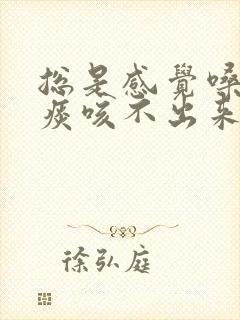 總是感覺嗓
痰咳不出來
徐弘庭